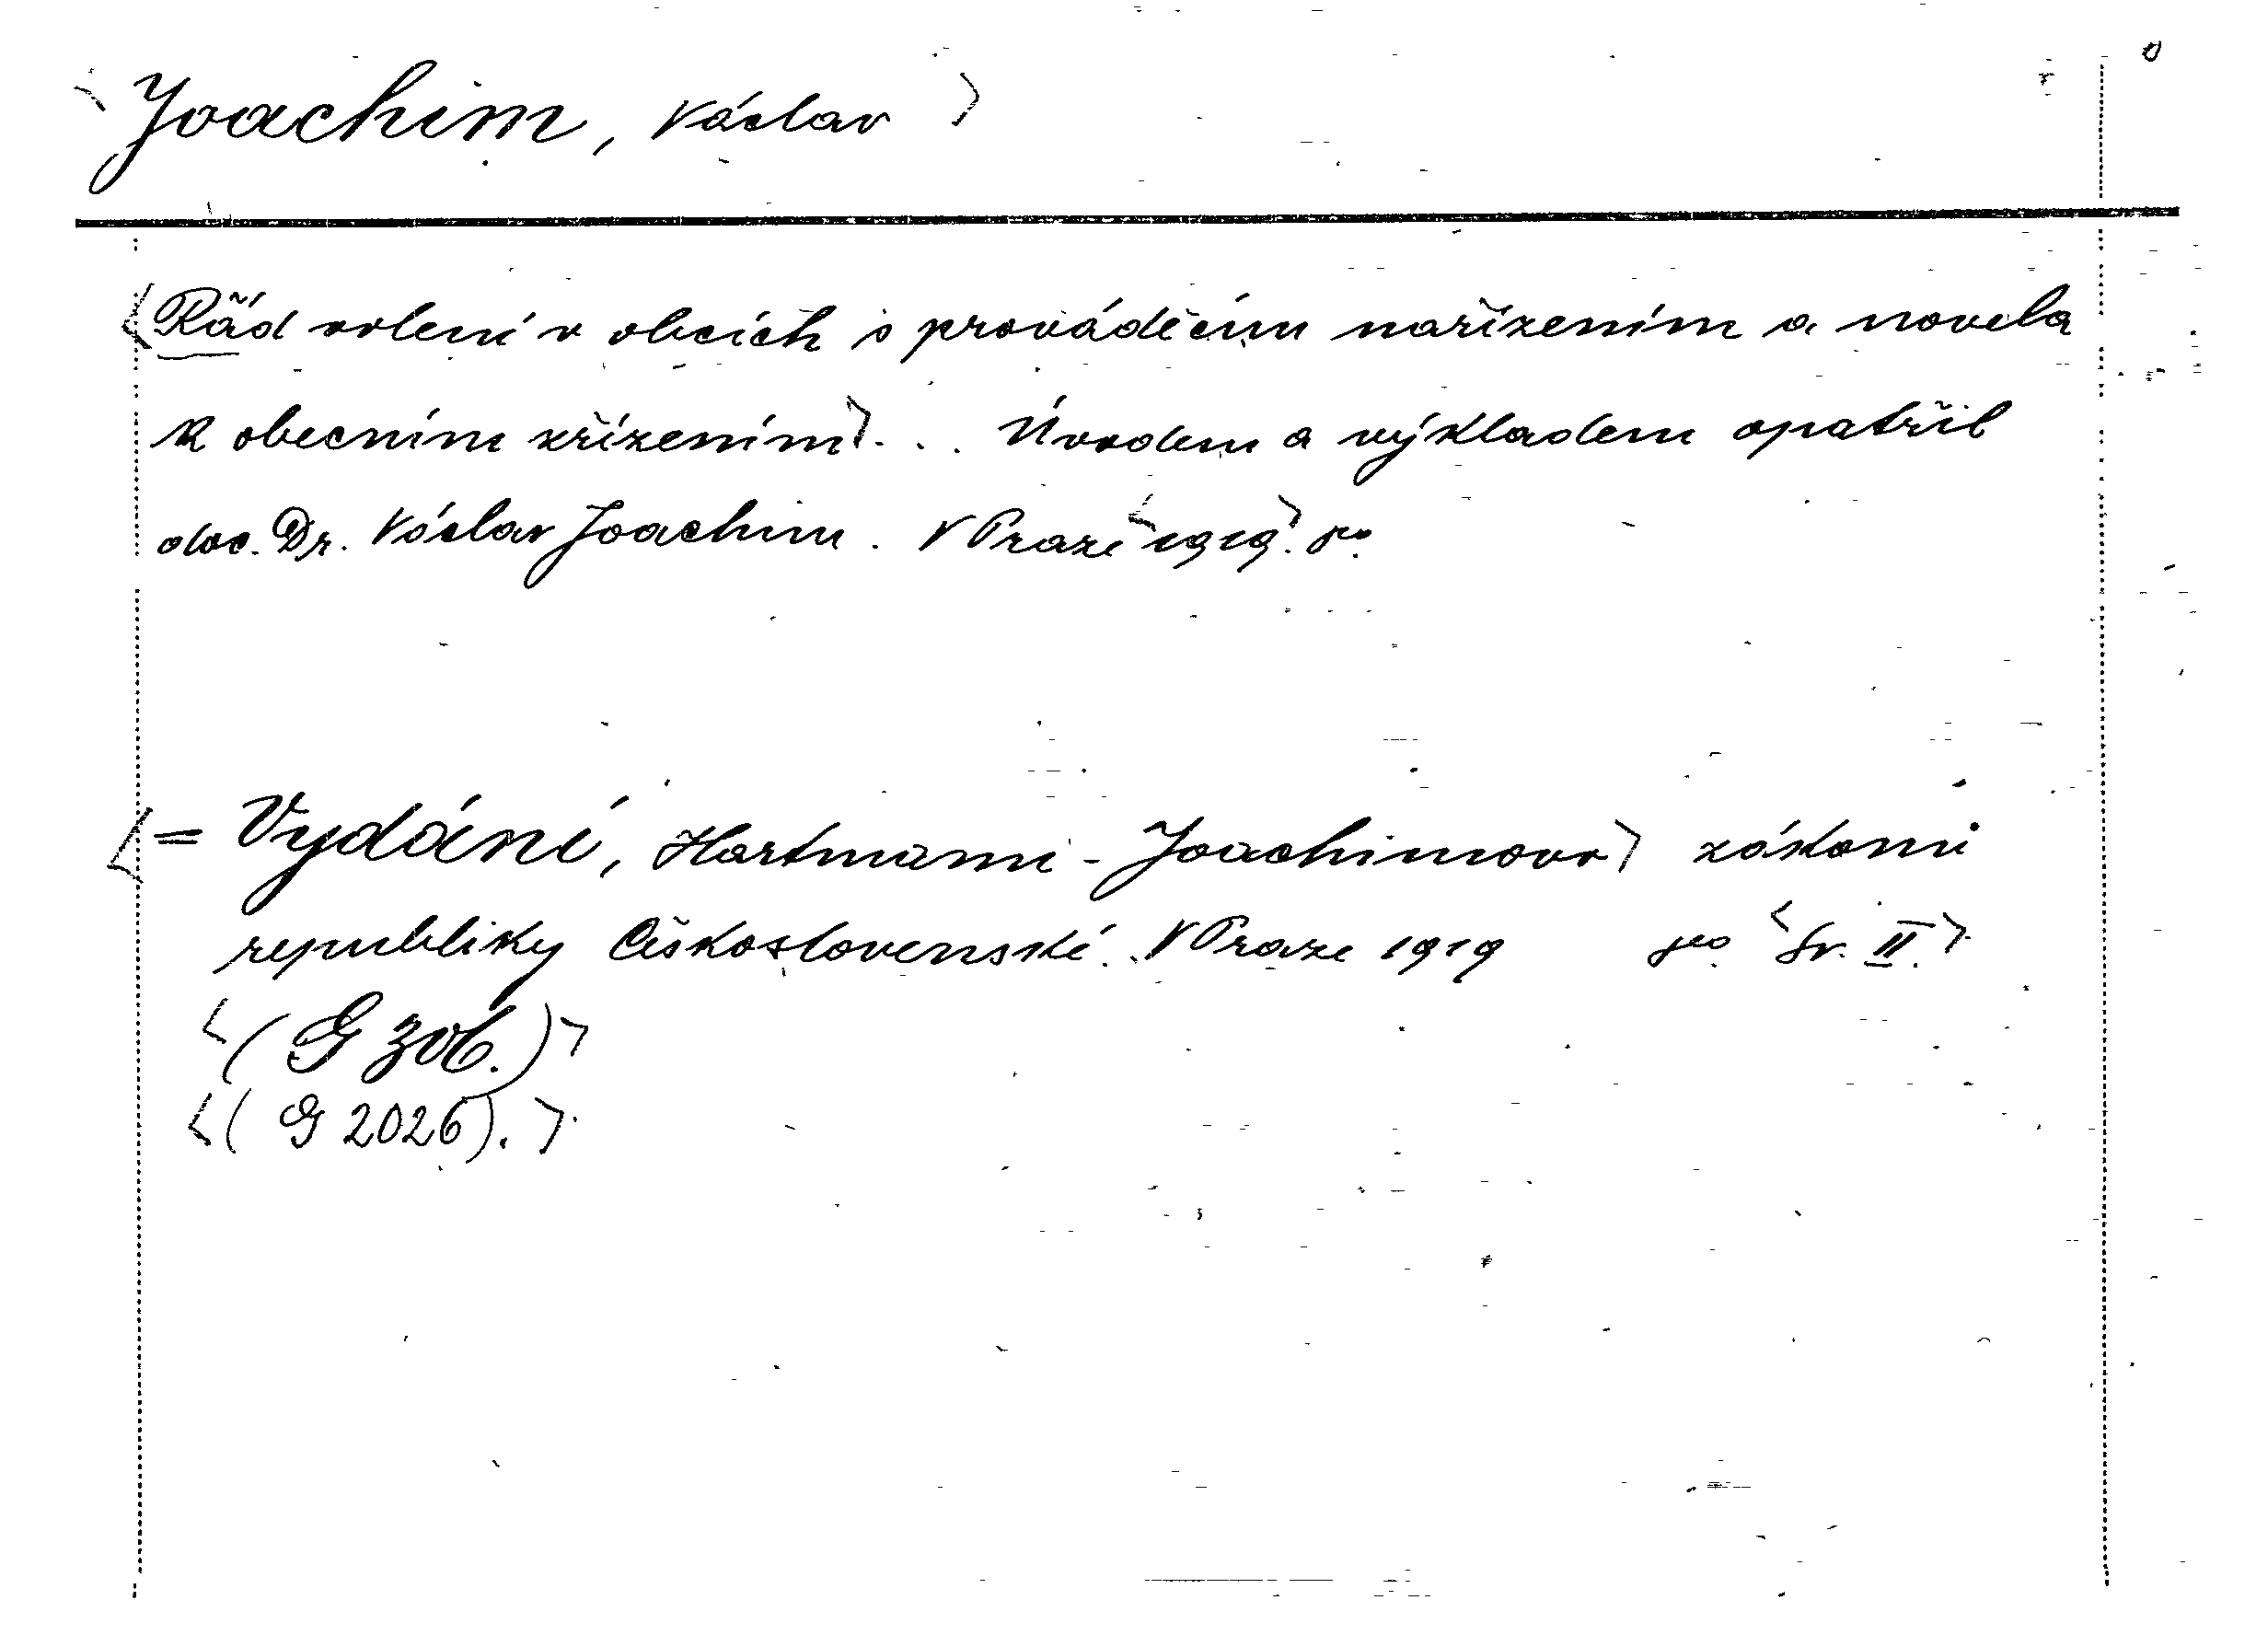 Joachim, Václav
Řád volení v obcích s prováděcím nařízením a novela
k obecním zřízením... Úvodem a výkladem opatřil
doc. Dr. Václav Joachim. V Praze 1919. 8o.
= Vydání, Hartmann-Joachimovo zákonů
republiky Československé. V Praze 1919 8o. Sv. II.
(G 306.)
(G 2026).